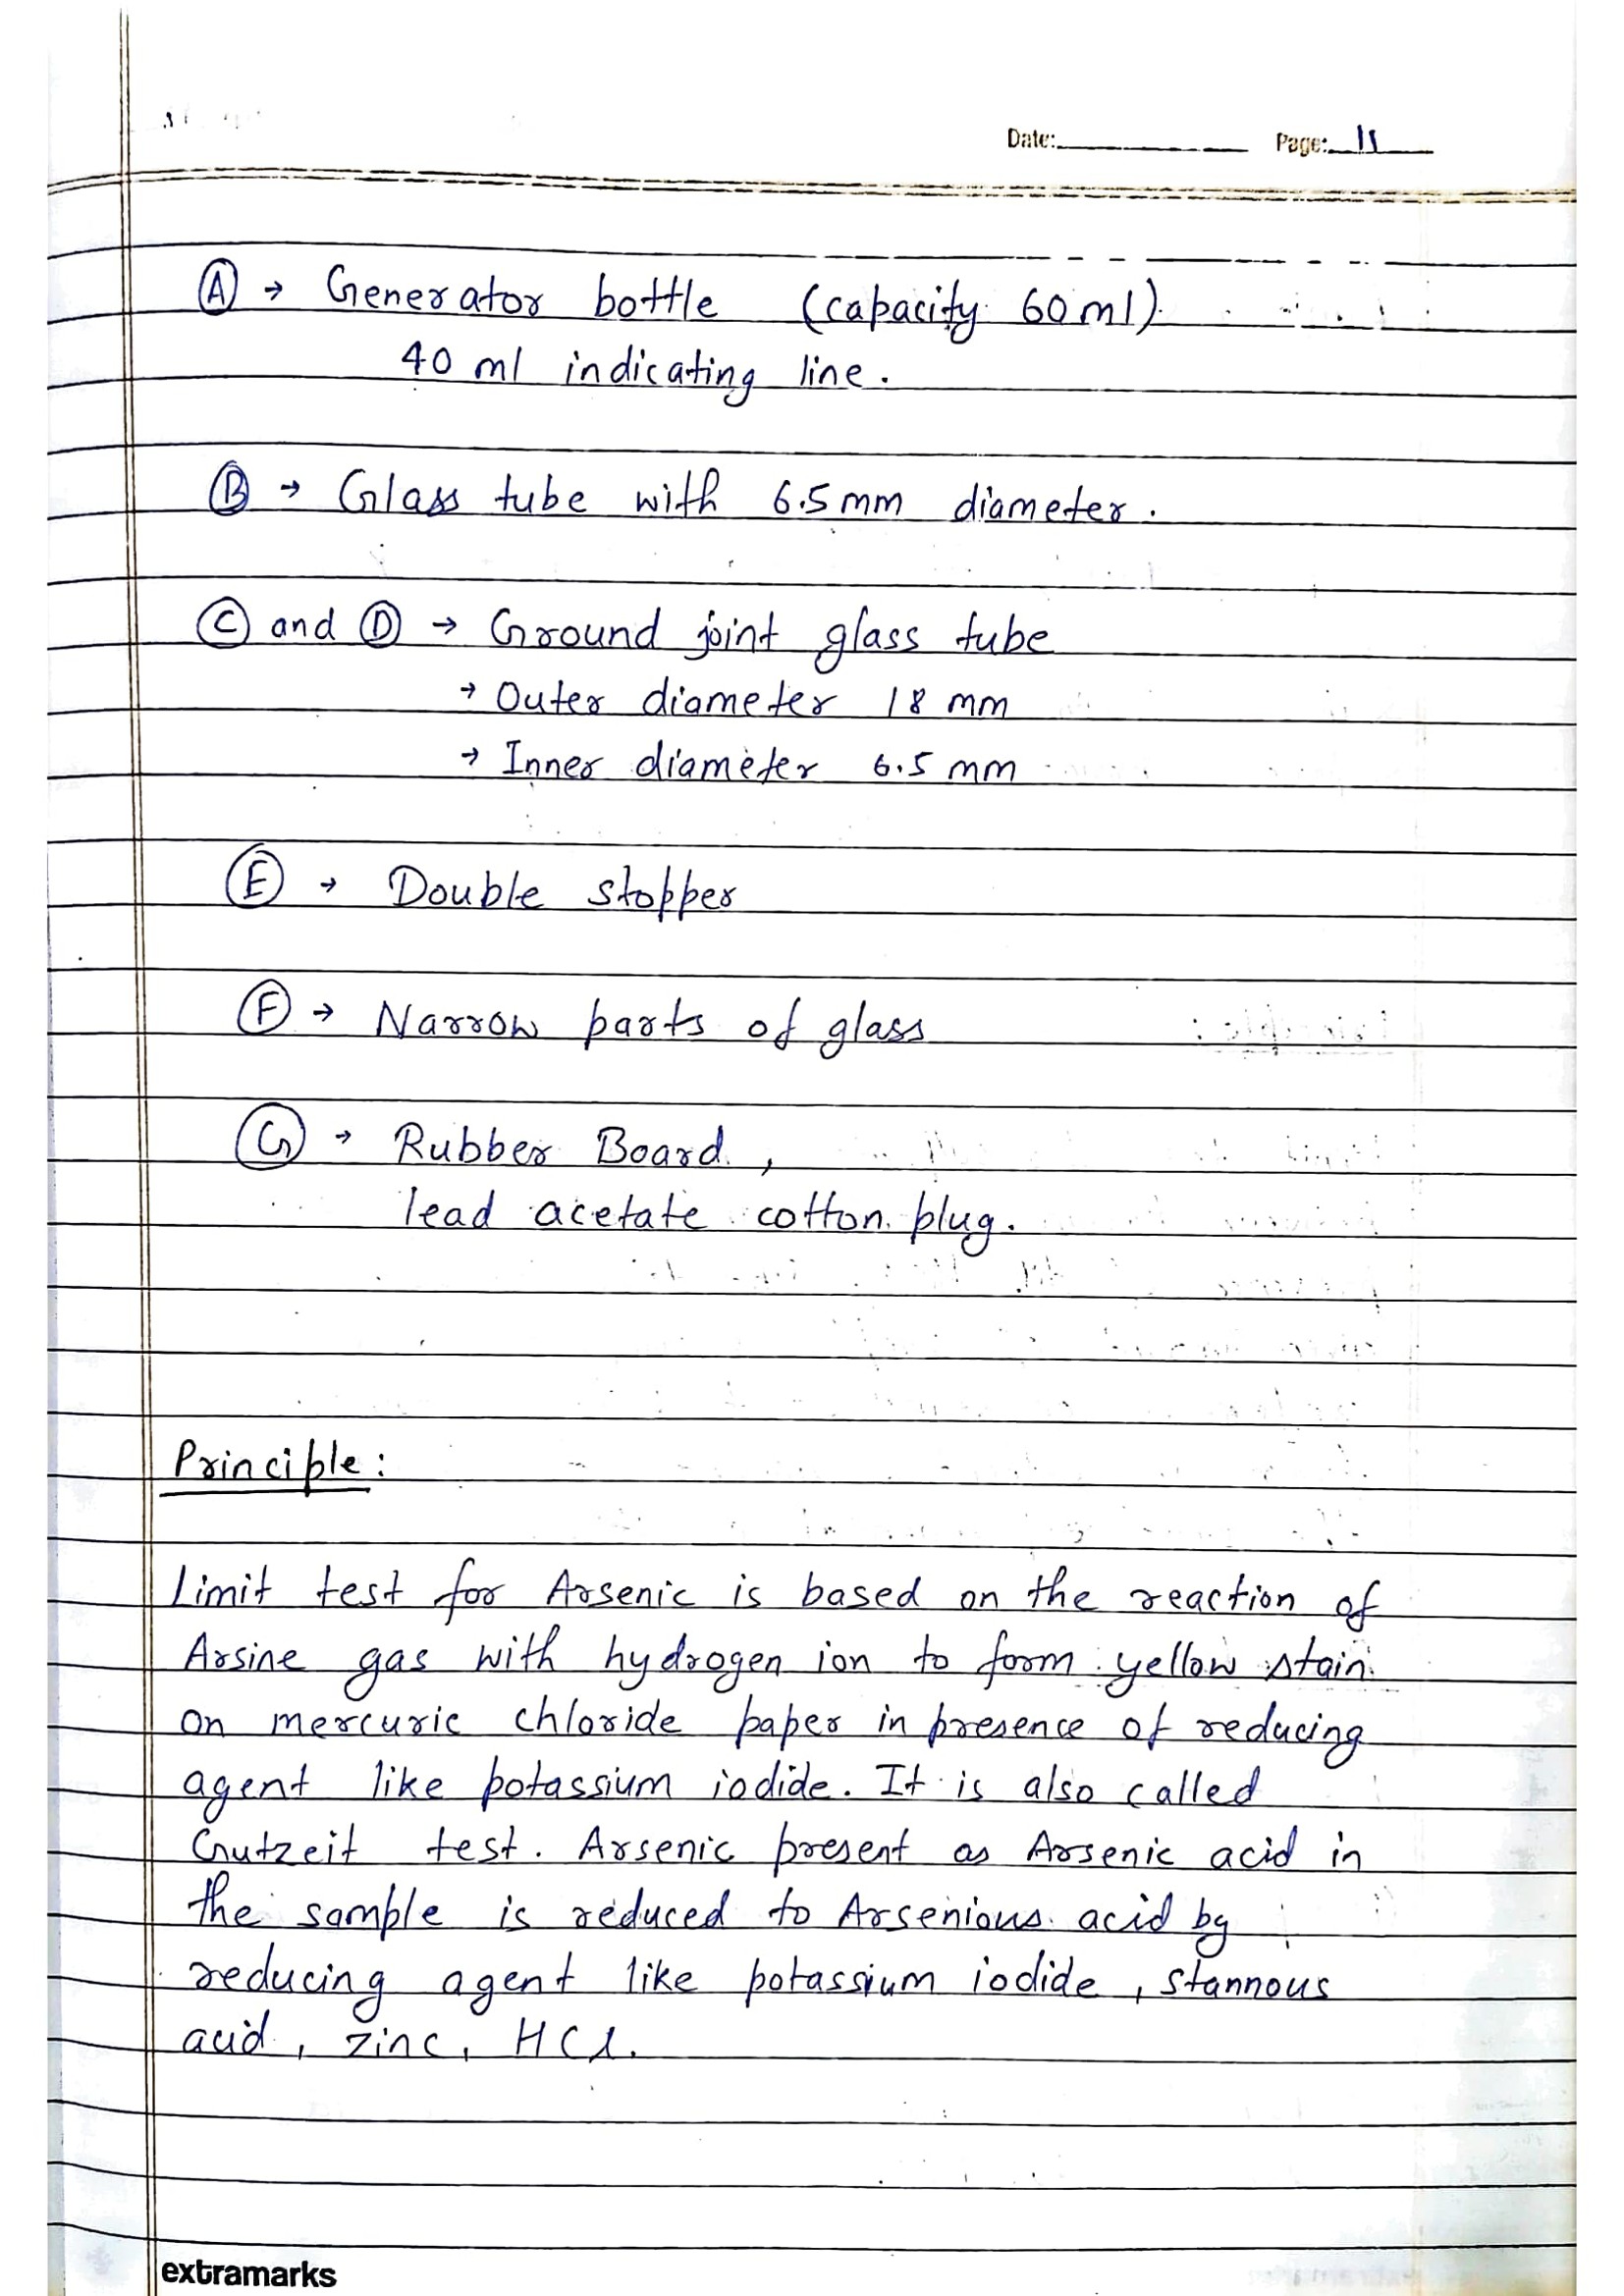 Date: Page: 11
Ⓐ → Generator bottle (capacity 60 ml)
40 ml indicating line.
Ⓑ → Glass tube with 6.5 mm diameter.
Ⓒ and Ⓓ → Ground joint glass tube
→ Outer diameter 18 mm
→ Inner diameter 6.5 mm
Ⓔ → Double stopper
Ⓕ → Narrow parts of glass
Ⓖ → Rubber Board,
lead acetate cotton plug.
Principle:
Limit test for Arsenic is based on the reaction of
Arsine gas with hydrogen ion to form yellow stain
on mercuric chloride paper in presence of reducing
agent like potassium iodide. It is also called
Gutzeit test. Arsenic present as Arsenic acid in
the sample is reduced to Arsenious acid by
reducing agent like potassium iodide, stannous
acid, zinc, HCl.
extramarks